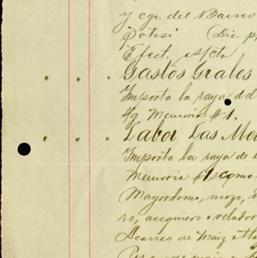 y cgn. del Banco
Potosi (Dic. p
Efect. s/cta
" " . Gastos Grales
Importa la raya d d
4/a Memoria #1.
" " . Labor Las Mo
Importa la raya de
Memoria #1 como
Mayordomo, mozo,
ro, acequiero y velador
Acarreo de Maiz